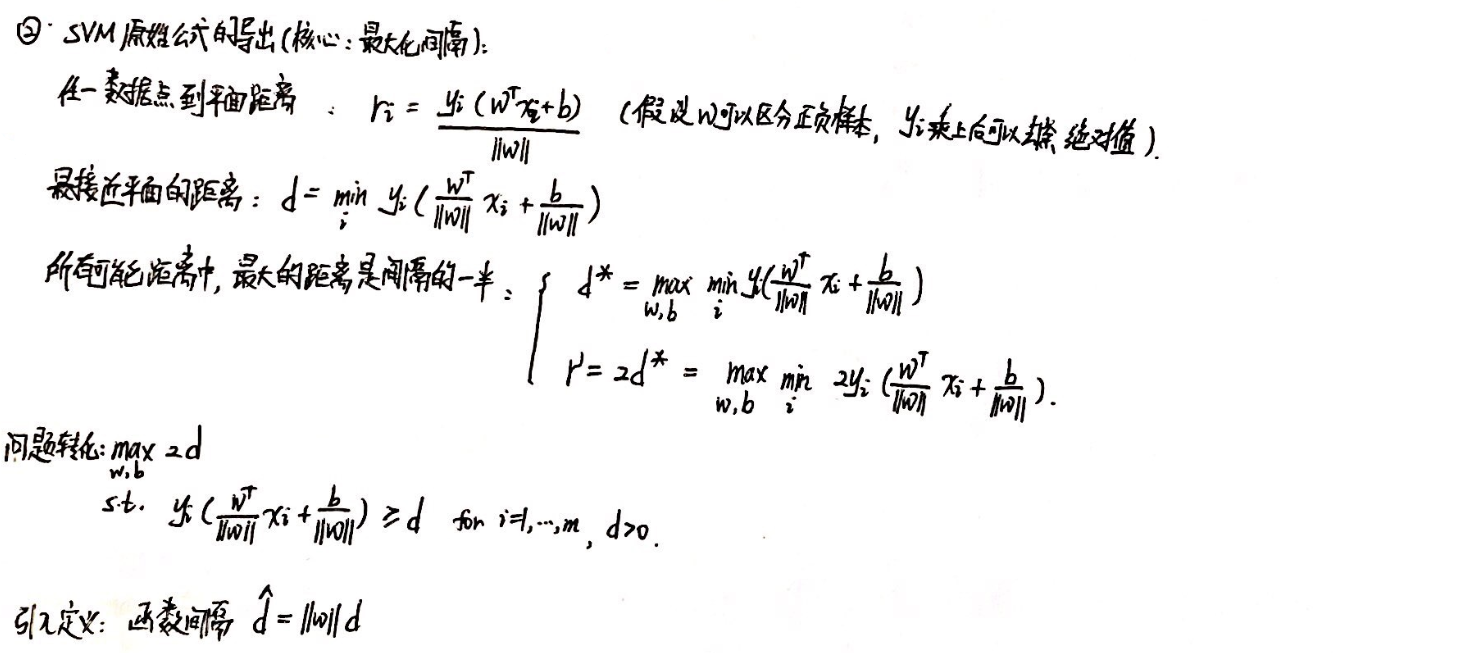 ② SVM原始公式的导出(核心:最大化间隔):
任一数据点到平面距离 : rᵢ = yᵢ(wᵀxᵢ+b) / ‖w‖ (假设w可以区分正负样本, yᵢ乘上后可以去除绝对值).
最接近平面的距离: d = min_i yᵢ(wᵀ/‖w‖ xᵢ + b/‖w‖)
所有可能距离中, 最大的距离是间隔的一半: { d* = max_{w,b} min_i yᵢ(wᵀ/‖w‖ xᵢ + b/‖w‖)
r = 2d* = max_{w,b} min_i 2yᵢ(wᵀ/‖w‖ xᵢ + b/‖w‖).
问题转化: max_{w,b} 2d
s.t. yᵢ(wᵀ/‖w‖ xᵢ + b/‖w‖) ≥ d for i=1,…,m, d>0.
引入定义: 函数间隔 d̂ = ‖w‖d